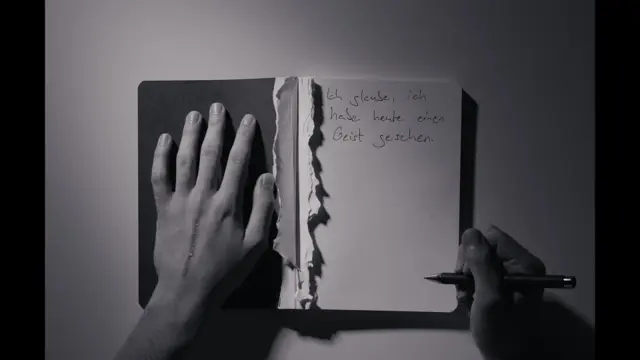 Ich glaube, ich
habe heute einen
Geist gesehen.